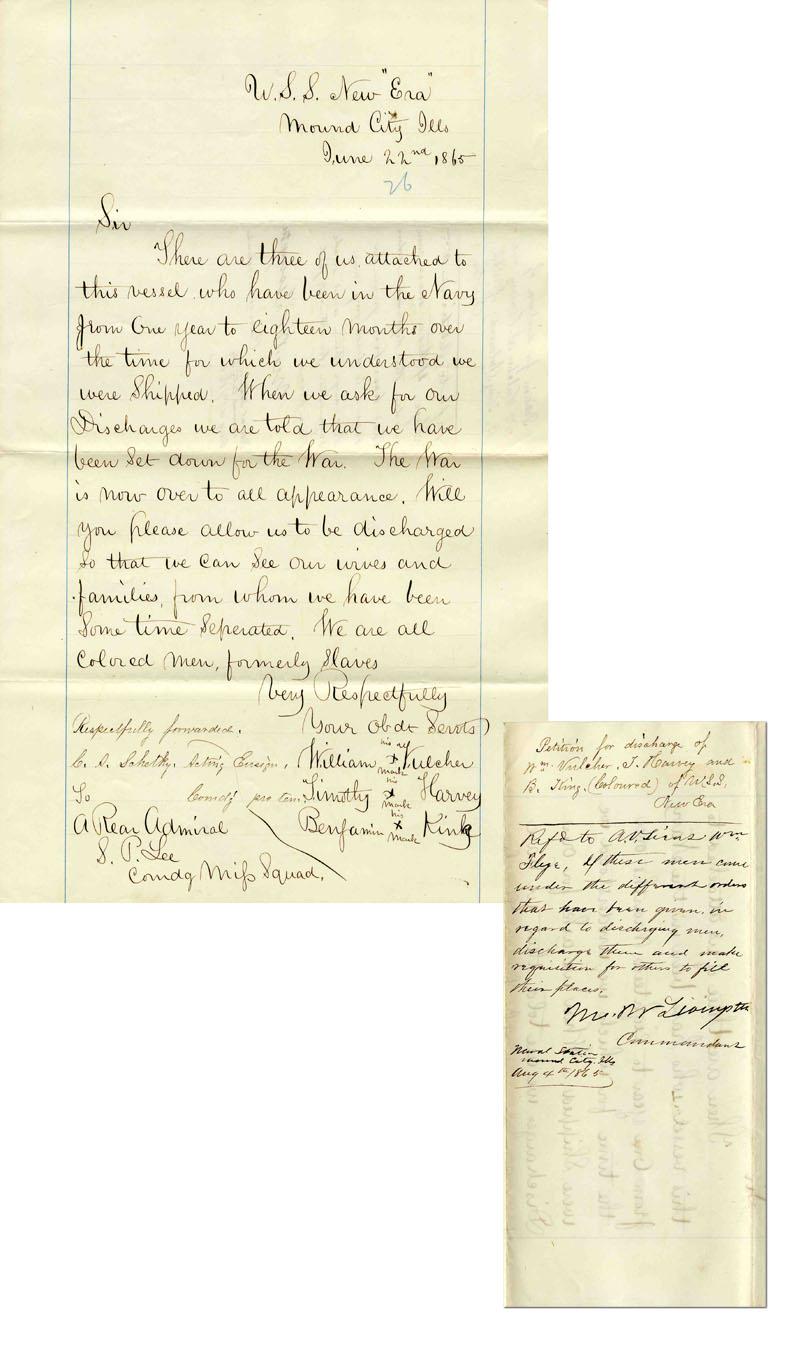 U.S.S. New "Era"
Mound City Ills
June 22nd 1865
26
Sir
There are three of us attached to
this vessel who have been in the Navy
from One year to eighteen Months over
the time for which we understood we
were Shipped. When we ask for our
Discharges we are told that we have
been Set down for the War. The War
is now over to all appearance. Will
you please allow us to be discharged
So that we can See our wives and
families, from whom we have been
Some time Seperated. We are all
Colored Men, formerly Slaves
Very Respectfully
Your Obdt Servts
Respectfully forwarded.
his
C. A. Schetky. Acting Ensign, William X Vulcher
mark
his
Comdg pro tem. Timothy X Harvey
mark
his
Benjamin X King
mark
To
A Rear Admiral
S. P. Lee
Comdg Miss Squad.
Petition for discharge of
Wm. Vulcher, T. Harvey and
B. King. (Coloured) of U.S.S.
New Era
Refd to A.V. Lieut Wm
if these men come
under the different orders
that have been given in
regard to discharging men,
discharge them and make
requisition for others to fill
their places.
Commandant
Naval Station
Mound City. Ills
Aug 4th 1865